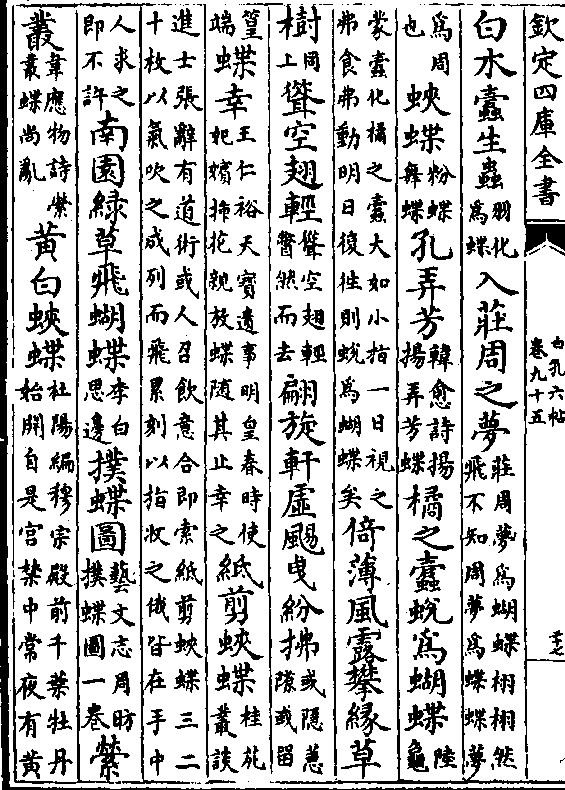 欽定四庫全書
白孔六帖
卷九十五
白水蠹生蟲羽化為蝶入莊周之夢莊周夢為蝴蝶栩栩然飛不知周夢為蝶蝶夢
為周也蛺蝶粉蝶舞蝶孔弄芳韓愈詩揚揚弄芳蝶橘之蠹蛻為蝴蝶陸龜
蒙蠹化橘之蠹大如小指一日視之弗食弗動明日復往則蛻為蝴蝶矣倚薄風露攀緣草
樹同上聳空翅輕聳空翅輕瞥然而去翩旋軒虛颺曳紛拂或隱蔥隙或留
篁端蝶幸王仁裕天寳遺事明皇春時使妃嬪揷花親放蝶隨其止幸之紙剪蛺蝶桂苑叢談
進士張辭有道術或人召飲意合即索紙剪蛺蝶三二十枚以氣吹之成列而飛累刻以指收之俄皆在手中
人求之即不許南園緑草飛蝴蝶李白思邊撲蝶圖藝文志周昉撲蝶圖一卷縈
叢韋應物詩縈叢蝶尚亂黃白蛺蝶杜陽編穆宗殿前千葉牡丹始開自是宫禁中常夜有黃